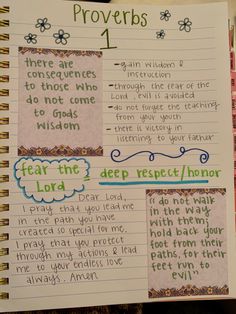 Proverbs
1
there are
consequences
to those who
do not come
to Gods
wisdom
- gain wisdom &
instruction
- through the fear of the
Lord, evil is avoided
- do not forget the teaching
from your youth
- there is victory in
listening to your father
fear the
Lord
deep respect/honor
Dear Lord,
I pray that you lead me
in the path you have
created so special for me,
I pray that you protect
through my actions & lead
me to your endless love
always. Amen
"do not walk
in the way
with them;
hold back your
foot from their
paths, for their
feet run to
evil"